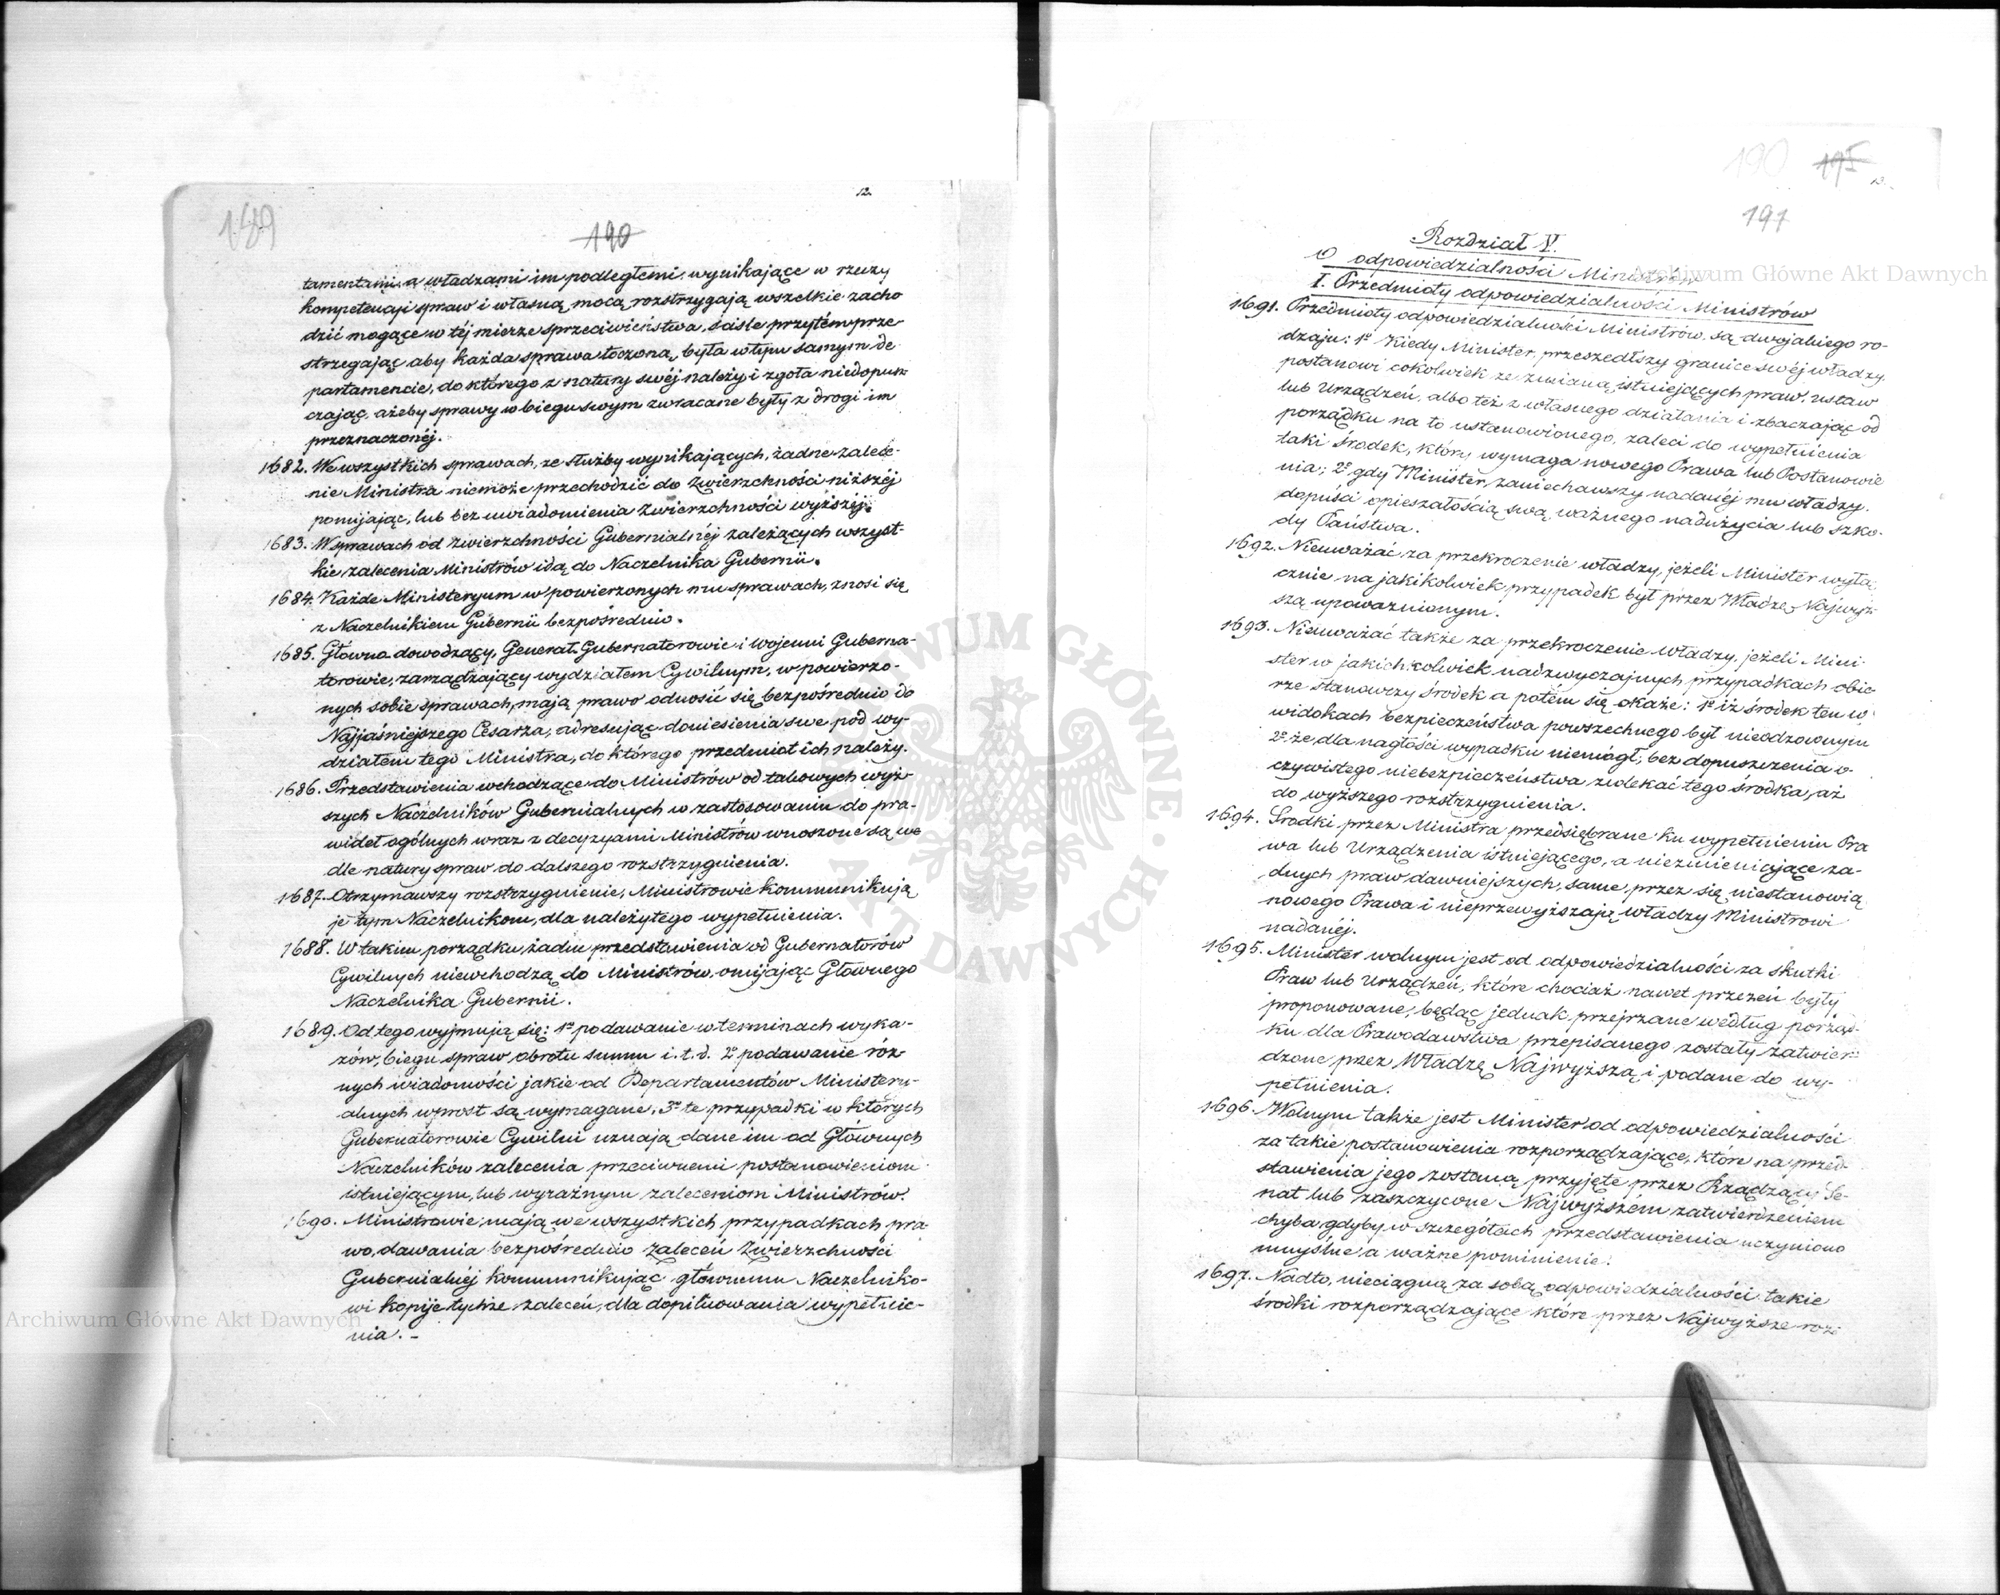 12.
189
190
tamentami a władzami im podległemi, wynikające w rzeczy
kompetencyi spraw i własną mocą rozstrzygają wszelkie zacho
dzić mogące w téj mierze sprzeciwieństwa, ściśle przytém prze
strzegając aby każda sprawa toczona była w tym samym de-
partamencie, do którego z natury swéj należy i zgoła niedopusz
czając, ażeby sprawy w biegu swym zwracane były z drogi im
przeznaczonéj.
1682. We wszystkich sprawach, ze służby wynikających, żadne zalece-
nie Ministra niemoże przechodzić do Zwierzchności niższéj
pomijając, lub bez uwiadomienia Zwierzchności wyższéj.
1683. W sprawach od Zwierzchności Gubernialnéj zależących wszyst-
kie zalecenia Ministrów idą do Naczelnika Gubernii.
1684. Każde Ministeryum w powierzonych mu sprawach, znosi się
z Naczelnikiem Gubernii bezpośrednio.
1685. Głowno-dowodzący, Generał-Gubernatorowie i Wojenni Guberna-
torowie, zarządzający wydziałem Cywilnym, w powierzo-
nych sobie sprawach, mają prawo odnosić się bezpośrednio do
Najjaśniejszego Cesarza, adresując doniesienia swe pod wy-
działem tego Ministra, do którego przedmiot ich należy.
1686. Przedstawienia wchodzące do Ministrów od takowych wyż-
szych Naczelników Gubernialnych w zastosowaniu do pra-
wideł ogólnych wraz z decyzyami Ministrów wnoszone są we
dle natury spraw do dalszego rozstrzygnienia.
1687. Otrzymawszy rozstrzygnienie, Ministrowie kommunikują
je tym Naczelnikom, dla należytego wypełnienia.
1688. W takim porządku żadne przedstawienia od Gubernatorów
Cywilnych niewchodzą do Ministrów, omijając Głownego
Naczelnika Gubernii.
1689. Od tego wyjmują się: 1º podawanie w terminach wyka-
zów, biegu spraw, obrotu summ i. t. d. 2º podawanie róż-
nych wiadomości jakie od Departamentów Ministery-
alnych wprost są wymagane, 3º te przypadki w których
Gubernatorowie Cywilni uznają dane im od Głównych
Naczelników zalecenia przeciwnemi postanowieniom
istniejącym, lub wyraźnym zaleceniom Ministrów.
1690. Ministrowie, mają we wszystkich przypadkach pra-
wo, dawania bezpośrednio zaleceń Zwierzchności
Gubernialnéj kommunikując głównemu Naczelniko-
wi kopije tychże zaleceń, dla dopilnowania wypełnie-
nia. –
190 195
13.
191
Rozdział V.
O odpowiedzialności Ministrów
I. Przedmioty odpowiedzialności Ministrów
1691. Przedmioty odpowiedzialności Ministrów są dwojakiego ro-
dzaju: 1º Kiedy Minister, przeszedłszy granice swéj władzy
postanowi cokolwiek ze zmianą istniejących praw, ustaw
lub Urządzeń, albo też z własnego działania i zbaczając od
porządku na to ustanowionego, zaleci do wypełnienia
taki środek, który wymaga nowego Prawa lub Postanowie
nia; 2º gdy Minister, zaniechawszy nadanéj mu władzy,
dopuści opieszałością swą ważnego nadużycia lub szko-
dy Państwa.
1692. Nieuważać za przekroczenie władzy, jeżeli Minister wyłą-
cznie na jakikolwiek przypadek był przez Władzę Najwyż-
szą upoważnionym.
1693. Nieuważać także za przekroczenie władzy, jeżeli Mini-
ster w jakichkolwiek nadzwyczajnych przypadkach obie-
rze stanowczy środek a potem się okaże: 1º iż środek ten w
widokach bezpieczeństwa powszechnego był nieodzownym
2º że, dla nagłości wypadku niemógł, bez dopuszczenia o-
czywistego niebezpieczeństwa zwlekać tego środka, aż
do wyższego rozstrzygnienia.
1694. Środki przez Ministra przedsiębrane ku wypełnieniu Pra
wa lub Urządzenia istniejącego, a niezmieniające ża-
dnych praw dawniejszych, same przez się niestanowią
nowego Prawa i nieprzewyższają władzy Ministrowi
nadanéj.
1695. Minister wolnym jest od odpowiedzialności za skutki
Praw lub Urządzeń, które chociaż nawet przezeń były
proponowane, będąc jednak przejrzane według porząd-
ku dla Prawodawstwa przepisanego zostały zatwier-
dzone przez Władzę Najwyższą i podane do wy-
pełnienia.
1696. Wolnym także jest Minister od odpowiedzialności
za takie postanowienia rozporządzające, które na przed-
stawienia jego zostaną przyjęte przez Rządzący Se-
nat lub zaszczycone Najwyższém zatwierdzeniem
chyba gdyby w szczegółach przedstawienia uczyniono
umyślne, a ważne pominienie.
1697. Nadto, nieciągną za sobą odpowiedzialności takie
środki rozporządzające które przez Najwyższe roz-
Archiwum Główne Akt Dawnych
Archiwum Główne Akt Dawnych
ARCHIWUM GŁÓWNE AKT DAWNYCH